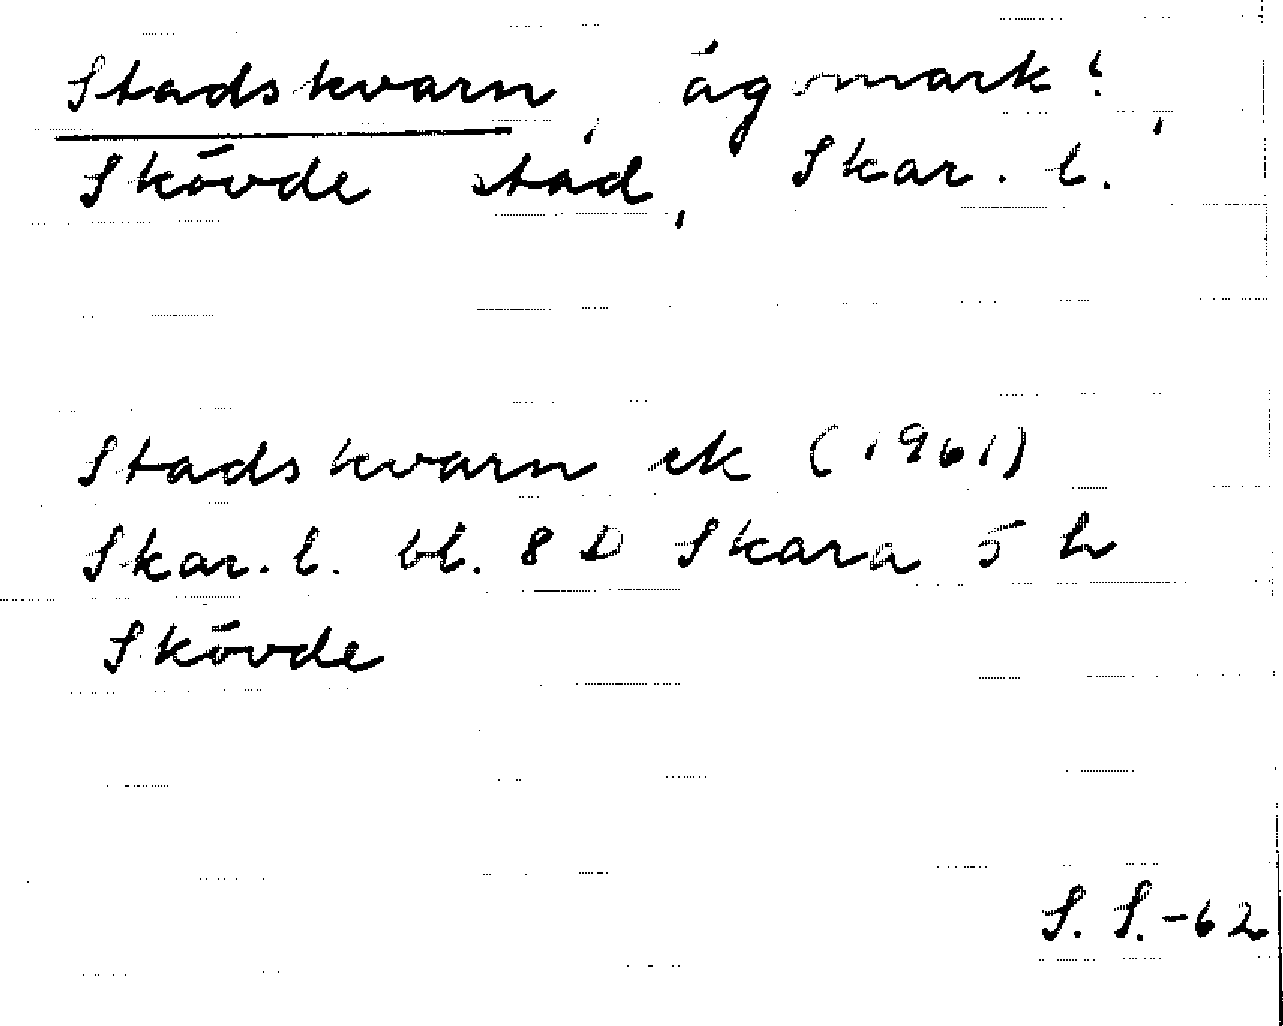 Stadskvarn, ägomark?,
Skövde stad, Skar. l.
Stadskvarn ek (1961)
Skar. l. bl. 8 D Skara 5 h
Skövde
S. S. -62